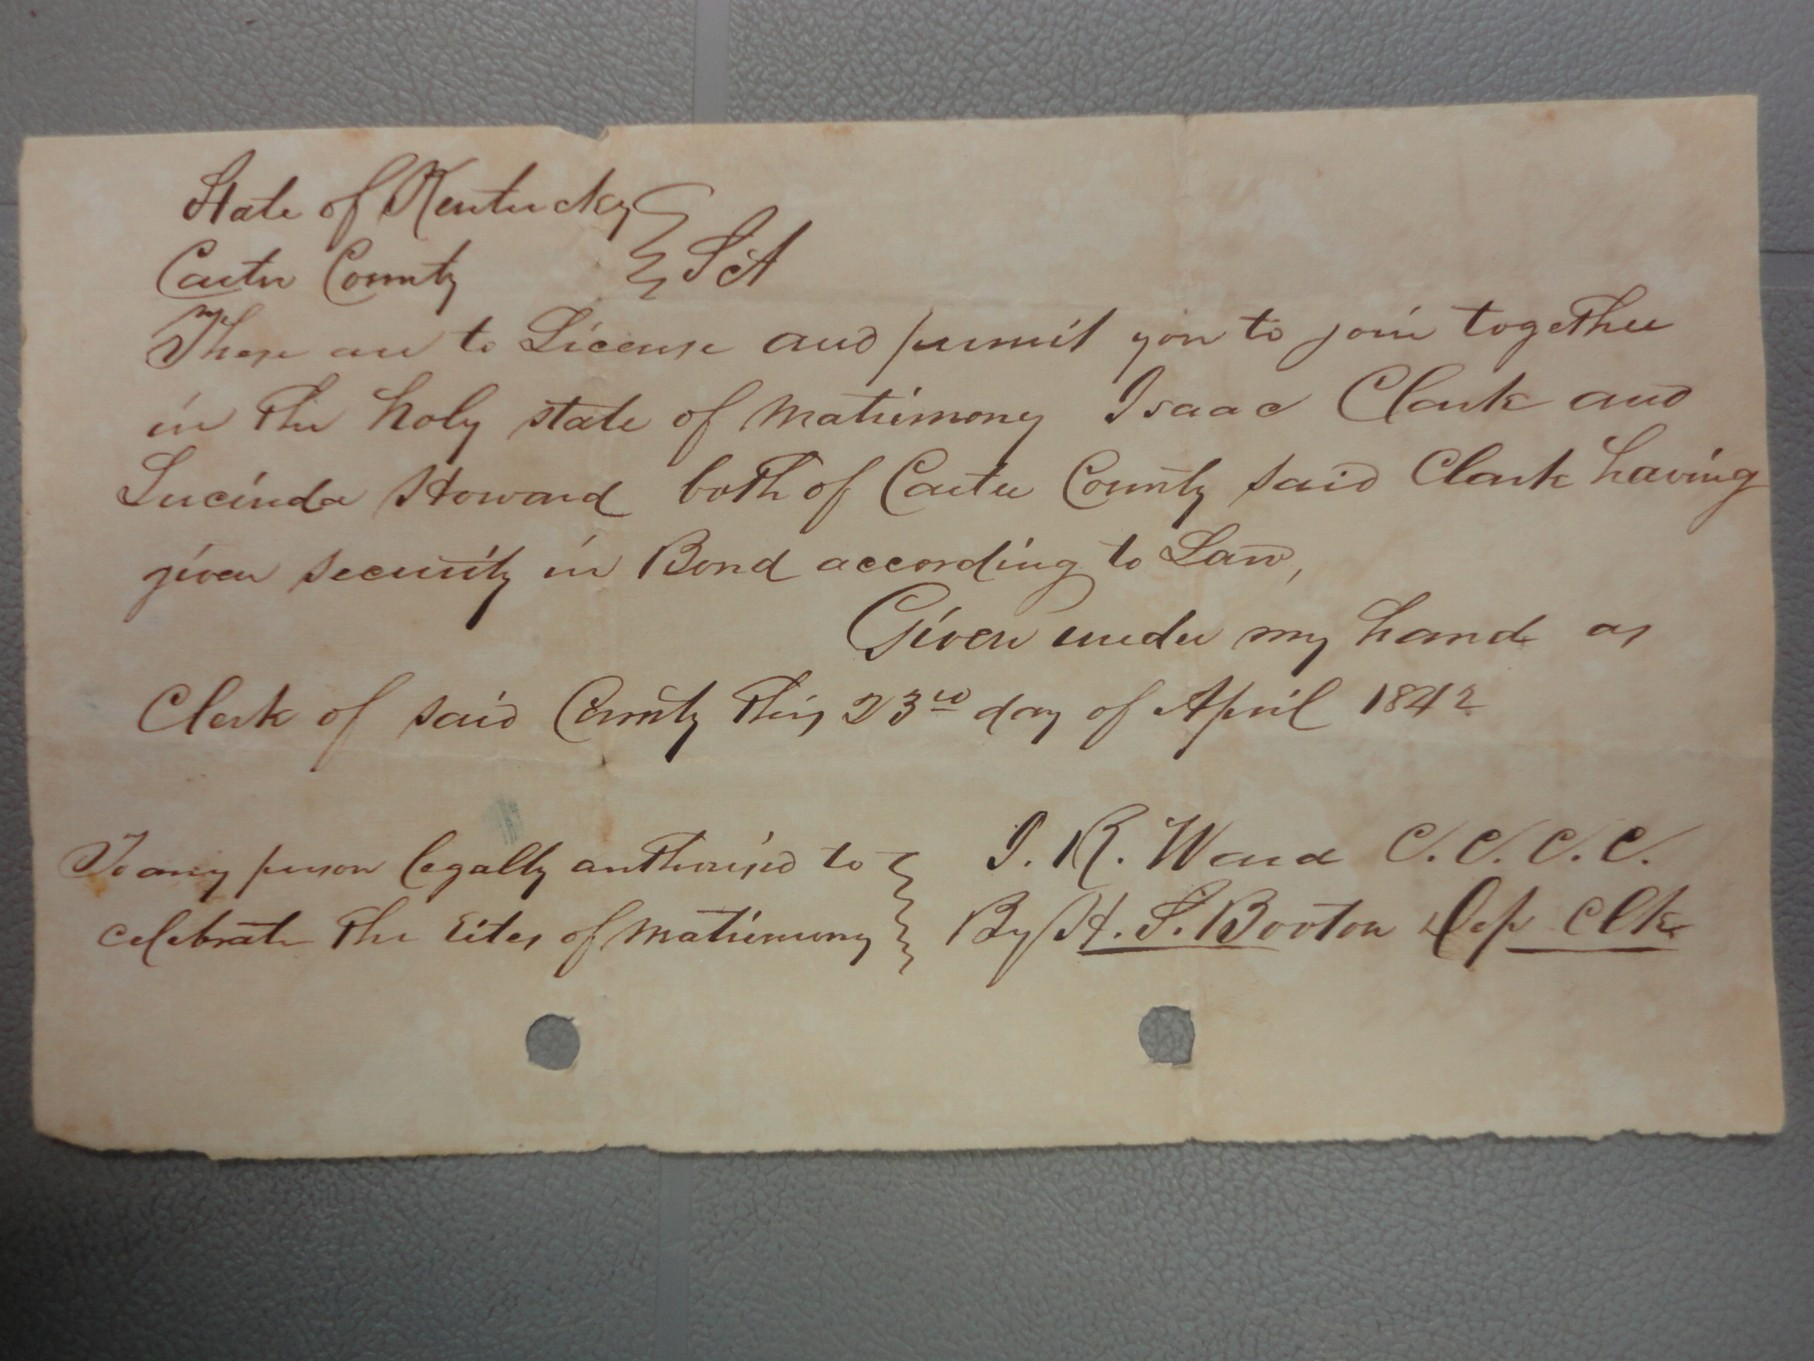 State of Kentucky
Carter County } Sct
These are to License and permit you to join together
in the holy state of matrimony Isaac Clark and
Lucinda Howard both of Carter County said Clark having
given security in Bond according to Law,
Given under my hand as
Clerk of said County this 23rd day of April 1842
To any person legally authorised to
celebrate the rites of matrimony }
J. R. Ward C. C. C. C.
By H. S. Booton Dep Clk